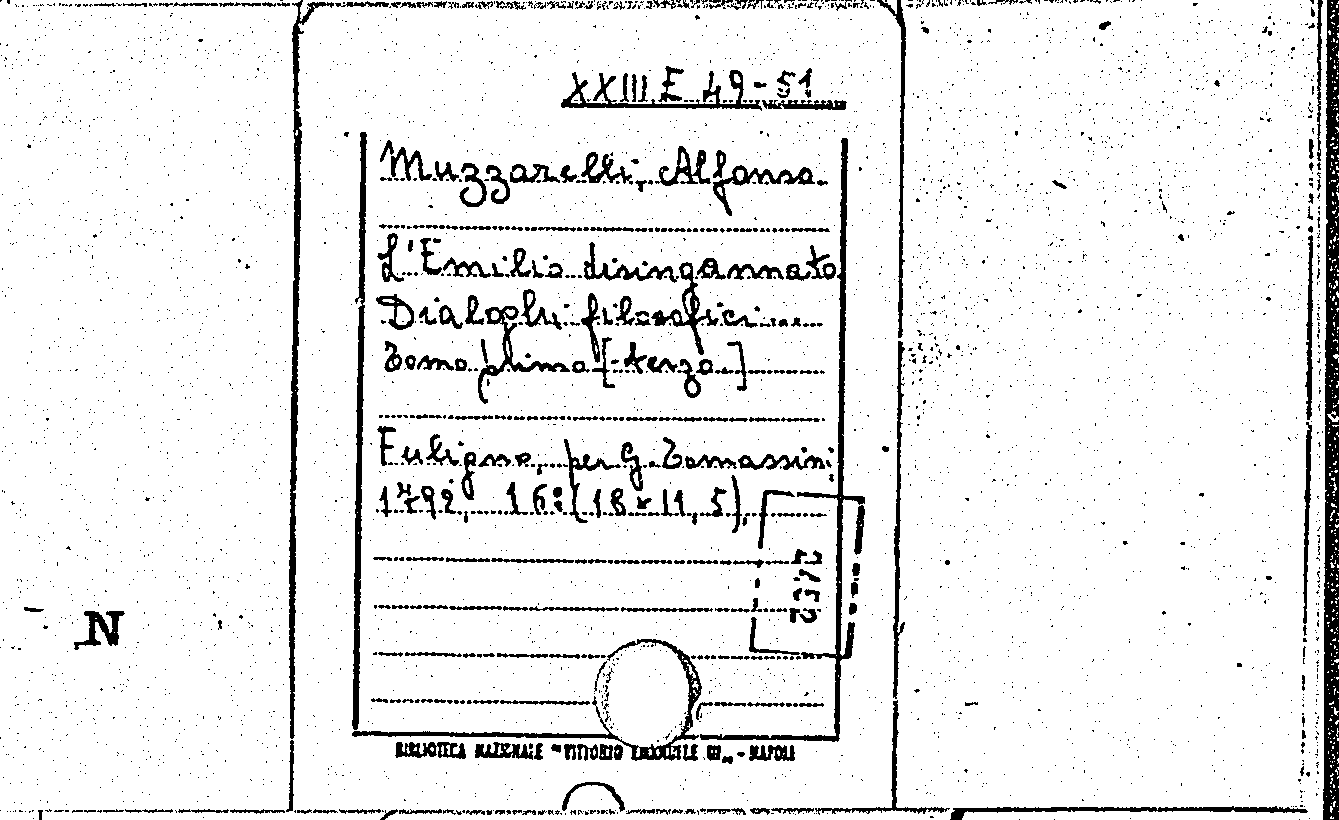 XXIII E 49-51
Muzzarelli, Alfonso.
L'Emilio disingannato
Dialoghi filosofici...
Tomo primo [-terzo.]
Fuligno, per G. Tomassini,
1792, 16º (18x11,5).
N
BIBLIOTECA NAZIONALE "VITTORIO EMANUELE III" - NAPOLI